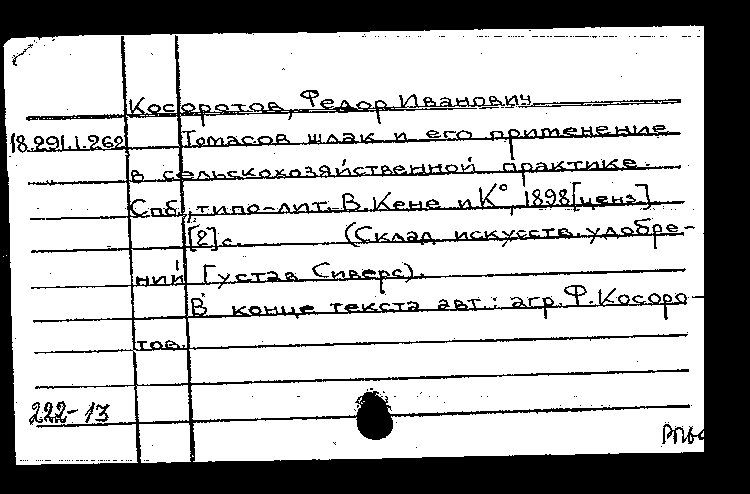 Косоротов, Федор Иванович
18.291.1.262 Томасов шлак и его применение
в сельскохозяйственной практике.
Спб., типо-лит. В. Кене и К°, 1898[ценз].
[2]с. (Склад искусств. удобре-
ний Густав Сиверс).
В конце текста авт.: агр. Ф. Косоро-
тов.
222-13